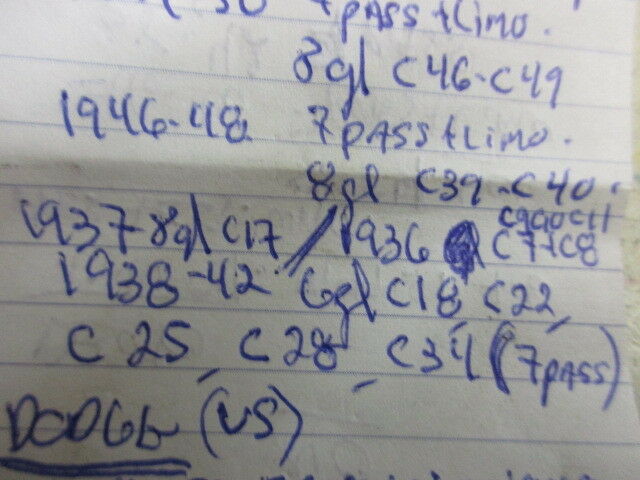 7pass + Limo.
8gl C46-C49
1946-48 7pass + Limo.
8gl C39-C40.
1937 8gl C17 / 1936 C7+C8
1938-42 6gl C18, C22,
C25, C28, C34 (7pass)
DODGE (US)